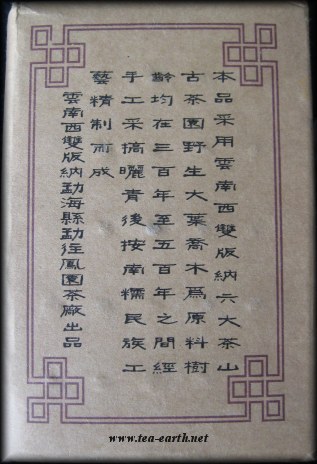 本品采用雲南西雙版納六大茶山
古茶園野生大葉喬木爲原料樹
齡均在三百年至五百年之間經
手工采摘曬青後按南糯民族工
藝精制而成
雲南西雙版納勐海縣勐往鳳園茶廠出品
www.tea-earth.net